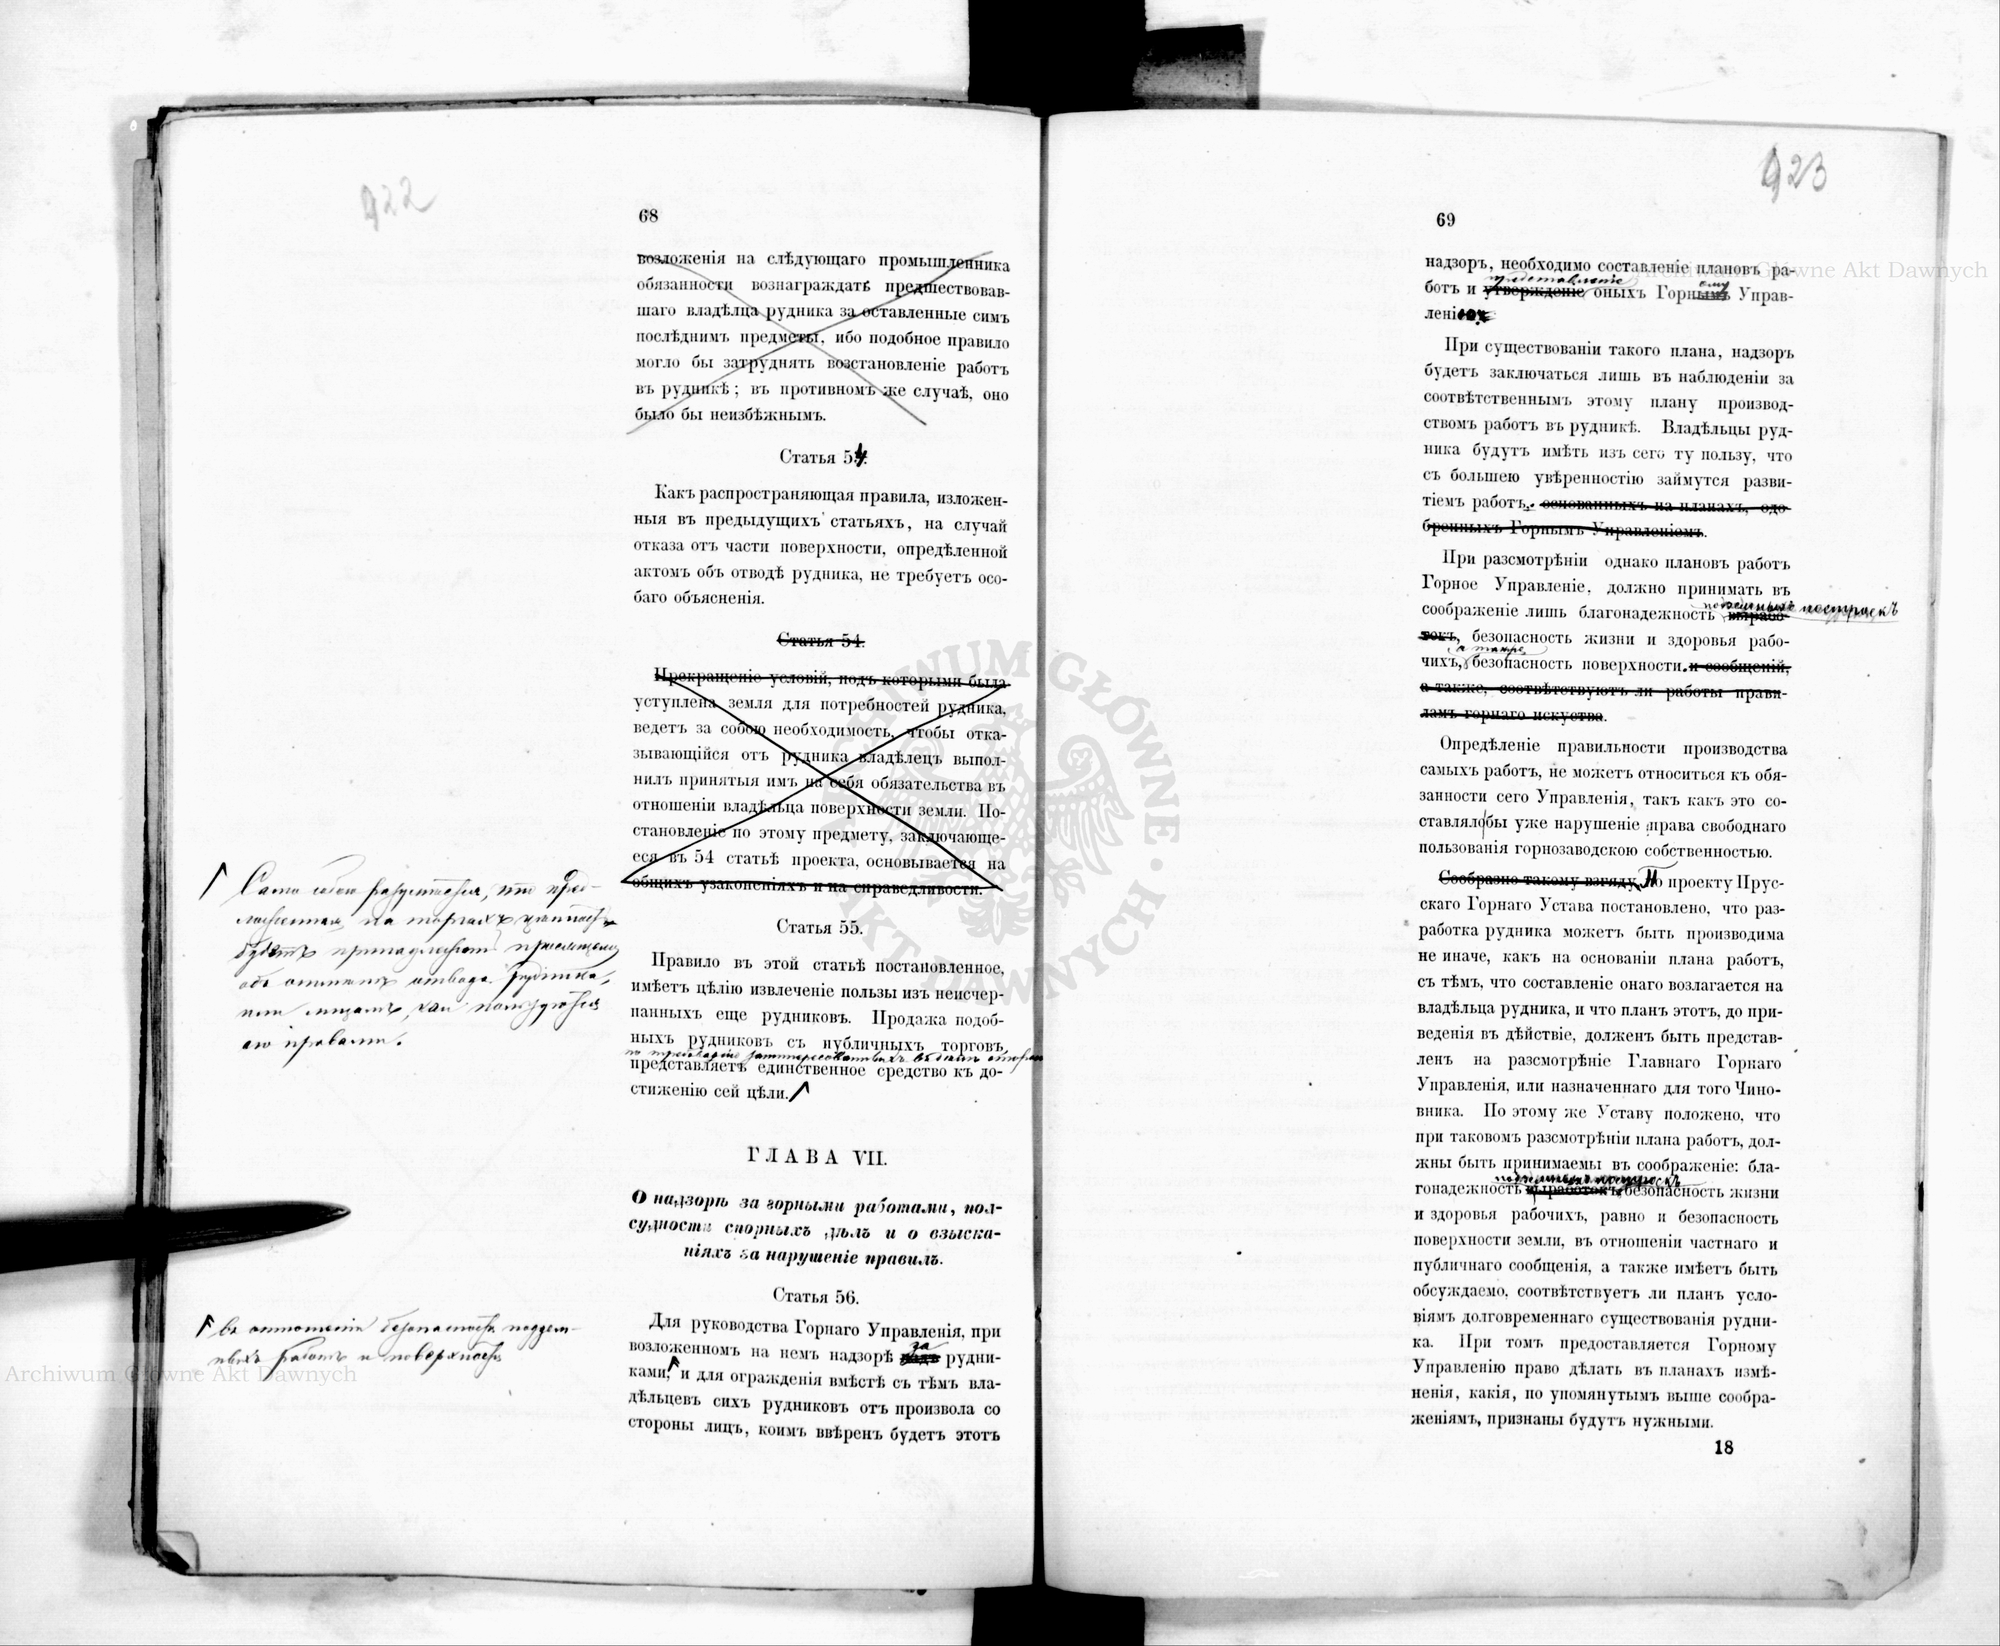 922
68
возложенія на слѣдующаго промышленника
обязанности вознаграждать предшествовав-
шаго владѣлца рудника за оставленные симъ
послѣднимъ предметы, ибо подобное правило
могло бы затруднять возстановленіе работъ
въ рудникѣ; въ противномъ же случаѣ, оно
было бы неизбѣжнымъ.
Статья 54.
Какъ распространяющая правила, изложен-
ныя въ предыдущихъ статьяхъ, на случай
отказа отъ части поверхности, опредѣленной
актомъ объ отводѣ рудника, не требуетъ осо-
баго объясненія.
Статья 54.
Прекращеніе условій, подъ которыми была
уступлена земля для потребностей рудника,
ведетъ за собою необходимость, чтобы отка-
зывающійся отъ рудника владѣлецъ выпол-
нилъ принятыя имъ на себя обязательства въ
отношеніи владѣльца поверхности земли. По-
становленіе по этому предмету, заключающе-
еся въ 54 статьѣ проекта, основывается на
общихъ узаконеніяхъ и на справедливости.
Статья 55.
Правило въ этой статьѣ постановленное,
имѣетъ цѣлію извлеченіе пользы изъ неисчер-
панныхъ еще рудниковъ. Продажа подоб-
ныхъ рудниковъ съ публичныхъ торговъ,
по требованію заинтересованныхъ въ
представляетъ единственное средство къ до-
стиженію сей цѣли.
Само собою разумѣется, что пред-
на торгахъ
будетъ принадлежать
объ отводъ рудника,
или лицамъ,
его правами.
ГЛАВА VII.
О надзорѣ за горными работами, под-
судности спорныхъ дѣлъ и о взыска-
ніяхъ за нарушеніе правилъ.
Статья 56.
Для руководства Горнаго Управленія, при
возложенномъ на немъ надзорѣ за рудни-
ками, и для огражденія вмѣстѣ съ тѣмъ вла-
дѣльцевъ сихъ рудниковъ отъ произвола со
стороны лицъ, коимъ ввѣренъ будетъ этотъ
въ отношеніи безопасности подзем-
ныхъ работъ и поверхности
923
69
надзоръ, необходимо составленіе плановъ ра-
представленіе
ботъ и утвержденіе оныхъ Горному Управ-
ленію.
При существованіи такого плана, надзоръ
будетъ заключаться лишь въ наблюденіи за
соотвѣтственнымъ этому плану производ-
ствомъ работъ въ рудникѣ. Владѣльцы руд-
ника будутъ имѣть изъ сего ту пользу, что
съ большею увѣренностію займутся разви-
тіемъ работъ, основанныхъ на планахъ, одо-
бренныхъ Горнымъ Управленіемъ.
При разсмотрѣніи однако плановъ работъ
Горное Управленіе, должно принимать въ
подземныхъ построекъ
соображеніе лишь благонадежность вырабо-
токъ, безопасность жизни и здоровья рабо-
а также
чихъ, безопасность поверхности и сообщеній,
а также, соотвѣтствуютъ ли работы прави-
ламъ горнаго искуства.
Опредѣленіе правильности производства
самыхъ работъ, не можетъ относиться къ обя-
занности сего Управленія, такъ какъ это со-
ставлялобы уже нарушеніе права свободнаго
пользованія горнозаводскою собственностью.
Сообразно такому взгляду, По проекту Прус-
скаго Горнаго Устава постановлено, что раз-
работка рудника можетъ быть производима
не иначе, какъ на основаніи плана работъ,
съ тѣмъ, что составленіе онаго возлагается на
владѣльца рудника, и что планъ этотъ, до при-
веденія въ дѣйствіе, долженъ быть представ-
ленъ на разсмотрѣніе Главнаго Горнаго
Управленія, или назначеннаго для того Чино-
вника. По этому же Уставу положено, что
при таковомъ разсмотрѣніи плана работъ, дол-
жны быть принимаемы въ соображеніе: бла-
подземныхъ построекъ
гонадежность выработокъ, безопасность жизни
и здоровья рабочихъ, равно и безопасность
поверхности земли, въ отношеніи частнаго и
публичнаго сообщенія, а также имѣетъ быть
обсуждаемо, соотвѣтствуетъ ли планъ усло-
віямъ долговременнаго существованія рудни-
ка. При томъ предоставляется Горному
Управленію право дѣлать въ планахъ измѣ-
ненія, какія, по упомянутымъ выше сообра-
женіямъ, признаны будутъ нужными.
18
Archiwum Główne Akt Dawnych
Archiwum Główne Akt Dawnych
ARCHIWUM GŁÓWNE AKT DAWNYCH